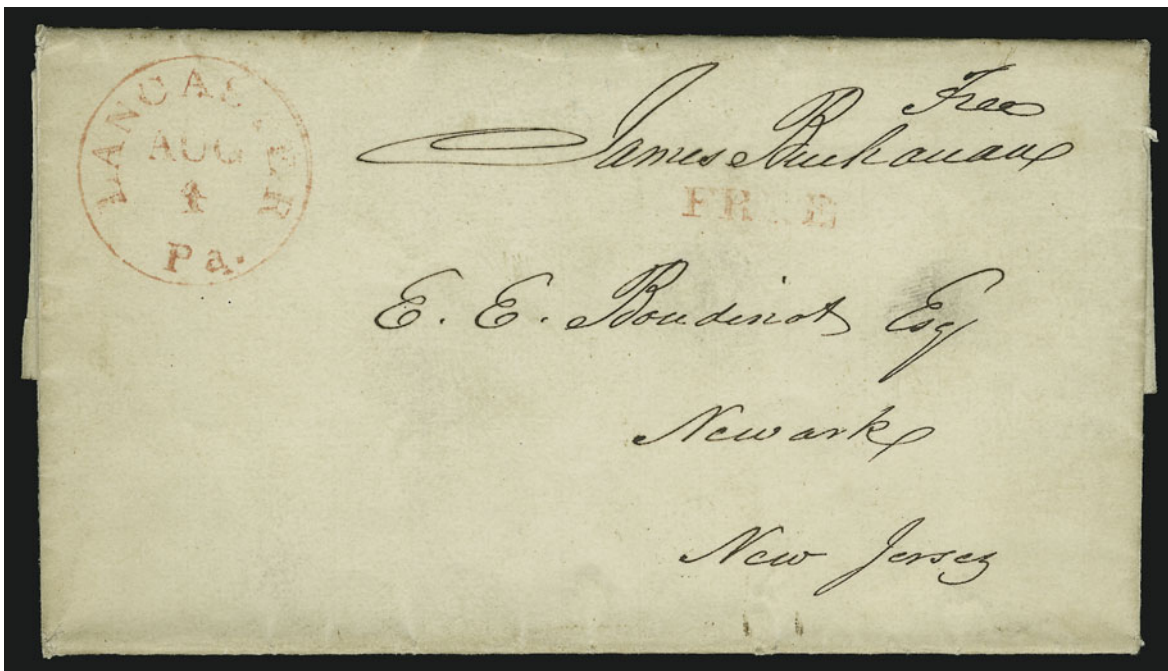 LANCASTER
AUG
4
Pa.
Free
James Buchanan
FREE
E. E. Boudinot Esq
Newark
New Jersey